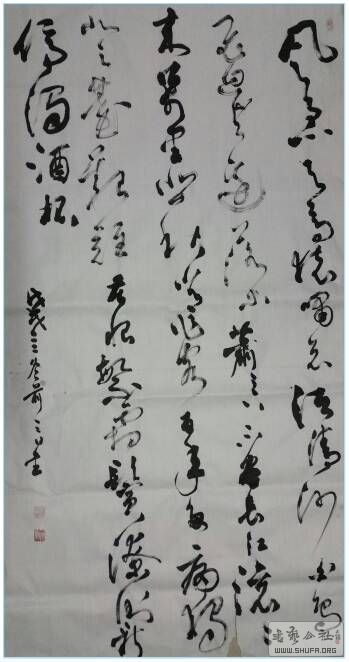 風急天高猿嘯哀渚清沙白鳥
飛迴無邊落木蕭々下不盡長江滾々
來萬里悲秋常作客百年多病獨
登臺艱難苦恨繁霜鬢潦倒新
停濁酒杯
戊戌立冬前三日書
书艺公社
WWW.SHUFA.ORG